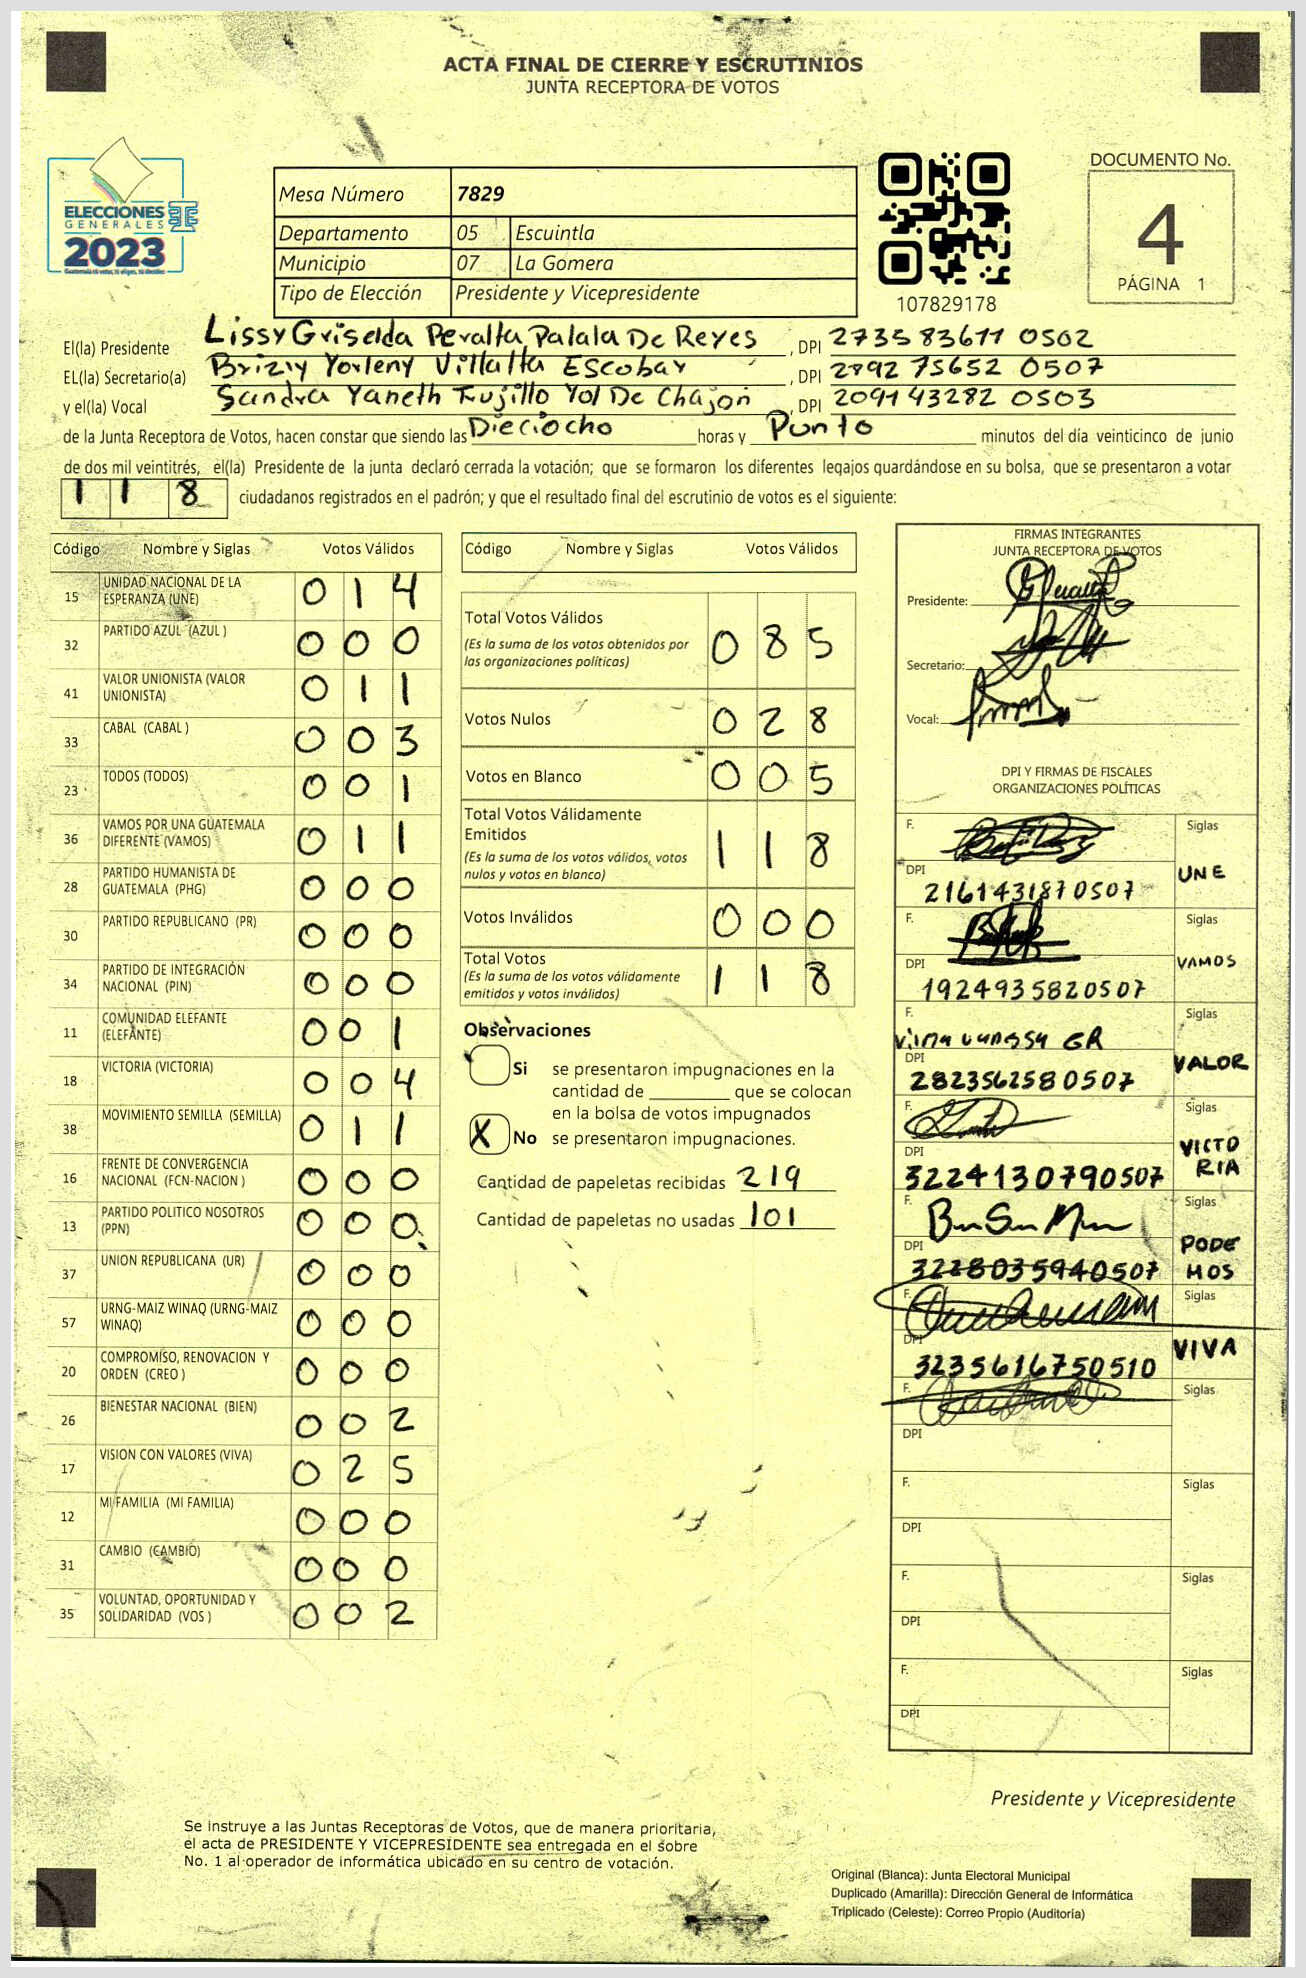 ACTA FINAL DE CIERRE Y ESCRUTINIOS
JUNTA RECEPTORA DE VOTOS
ELECCIONES
GENERALES
2023
Guatemala tú votas, tú eliges, tú decides
Mesa Número 7829
Departamento 05 Escuintla
Municipio 07 La Gomera
Tipo de Elección Presidente y Vicepresidente
107829178
DOCUMENTO No.
4
PÁGINA 1
El(la) Presidente Lissy Griselda Peralta Palala De Reyes, DPI 2735 83611 0502
EL(la) Secretario(a) Brizly Yorleny Villalta Escobar, DPI 2892 75652 0507
y el(la) Vocal Sandra Yaneth Trujillo Yol De Chajon, DPI 2091 43282 0503
de la Junta Receptora de Votos, hacen constar que siendo las Dieciocho horas y Punto minutos del día veinticinco de junio
de dos mil veintitrés, el(la) Presidente de la junta declaró cerrada la votación; que se formaron los diferentes legajos guardándose en su bolsa, que se presentaron a votar
1 1 8 ciudadanos registrados en el padrón; y que el resultado final del escrutinio de votos es el siguiente:
Código Nombre y Siglas Votos Válidos
15 UNIDAD NACIONAL DE LA ESPERANZA (UNE) 0 1 4
32 PARTIDO AZUL (AZUL ) 0 0 0
41 VALOR UNIONISTA (VALOR UNIONISTA) 0 1 1
33 CABAL (CABAL ) 0 0 3
23 TODOS (TODOS) 0 0 1
36 VAMOS POR UNA GUATEMALA DIFERENTE (VAMOS) 0 1 1
28 PARTIDO HUMANISTA DE GUATEMALA (PHG) 0 0 0
30 PARTIDO REPUBLICANO (PR) 0 0 0
34 PARTIDO DE INTEGRACIÓN NACIONAL (PIN) 0 0 0
11 COMUNIDAD ELEFANTE (ELEFANTE) 0 0 1
18 VICTORIA (VICTORIA) 0 0 4
38 MOVIMIENTO SEMILLA (SEMILLA) 0 1 1
16 FRENTE DE CONVERGENCIA NACIONAL (FCN-NACION ) 0 0 0
13 PARTIDO POLITICO NOSOTROS (PPN) 0 0 0
37 UNION REPUBLICANA (UR) 0 0 0
57 URNG-MAIZ WINAQ (URNG-MAIZ WINAQ) 0 0 0
20 COMPROMISO, RENOVACION Y ORDEN (CREO ) 0 0 0
26 BIENESTAR NACIONAL (BIEN) 0 0 2
17 VISION CON VALORES (VIVA) 0 2 5
12 MI FAMILIA (MI FAMILIA) 0 0 0
31 CAMBIO (CAMBIO) 0 0 0
35 VOLUNTAD, OPORTUNIDAD Y SOLIDARIDAD (VOS ) 0 0 2
Código Nombre y Siglas Votos Válidos
Total Votos Válidos 0 8 5
(Es la suma de los votos obtenidos por
las organizaciones políticas)
Votos Nulos 0 2 8
Votos en Blanco 0 0 5
Total Votos Válidamente
Emitidos 1 1 8
(Es la suma de los votos válidos, votos
nulos y votos en blanco)
Votos Inválidos 0 0 0
Total Votos 1 1 8
(Es la suma de los votos válidamente
emitidos y votos inválidos)
Observaciones
Si se presentaron impugnaciones en la
cantidad de ________ que se colocan
en la bolsa de votos impugnados
X No se presentaron impugnaciones.
Cantidad de papeletas recibidas 219
Cantidad de papeletas no usadas 101
FIRMAS INTEGRANTES
JUNTA RECEPTORA DE VOTOS
Presidente:
Secretario:
Vocal:
DPI Y FIRMAS DE FISCALES
ORGANIZACIONES POLÍTICAS
F. Siglas
DPI 2161431870507 UNE
F. Siglas
DPI 1924935820507 VAMOS
F. Siglas
DPI 2823562580507 VALOR
F. Siglas
DPI 3224130790507 VICTO
RIA
F. Siglas
DPI 3228035940507 PODE
MOS
F. Siglas
DPI 3235616750510 VIVA
F. Siglas
DPI
F. Siglas
DPI
F. Siglas
DPI
F. Siglas
DPI
Presidente y Vicepresidente
Se instruye a las Juntas Receptoras de Votos, que de manera prioritaria,
el acta de PRESIDENTE Y VICEPRESIDENTE sea entregada en el sobre
No. 1 al operador de informática ubicado en su centro de votación.
Original (Blanca): Junta Electoral Municipal
Duplicado (Amarilla): Dirección General de Informática
Triplicado (Celeste): Correo Propio (Auditoría)